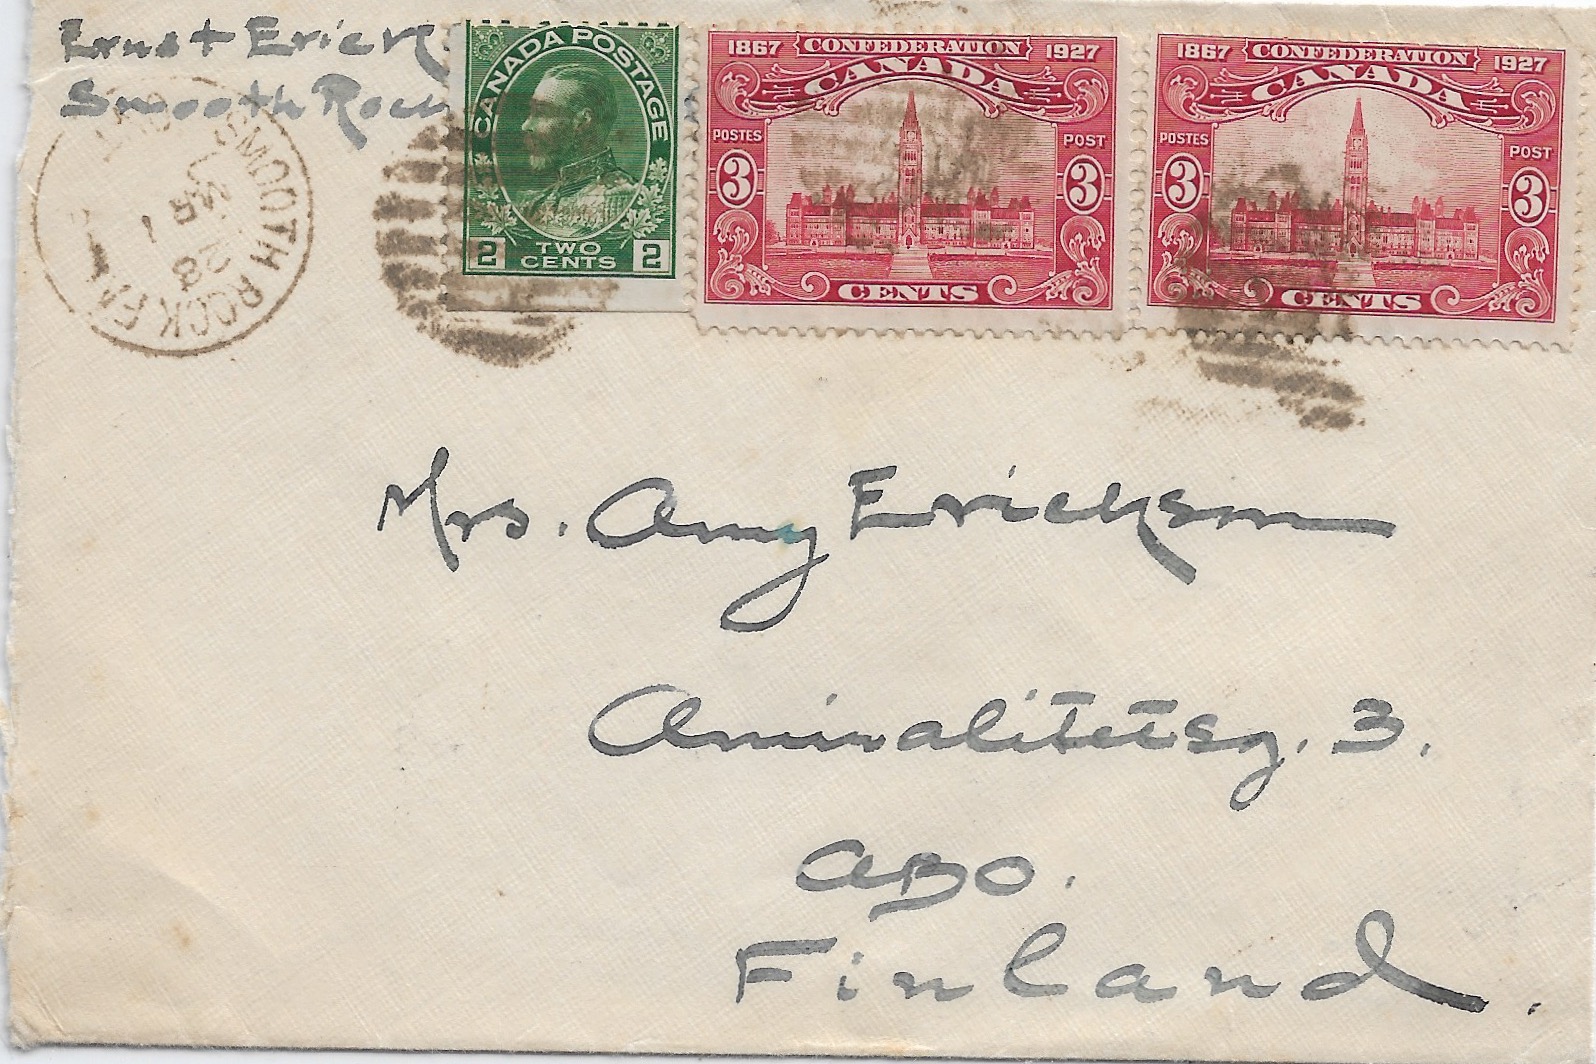 Ernst Erick
Smooth Rock
SMOOTH ROCK FA
MR 1
28
CANADA POSTAGE
2 TWO CENTS 2
1867 CONFEDERATION 1927
CANADA
POSTES POST
3 3
CENTS
1867 CONFEDERATION 1927
CANADA
POSTES POST
3 3
CENTS
Mrs. Amy Erickson
Amiralitetsg. 3.
ABO.
Finland.